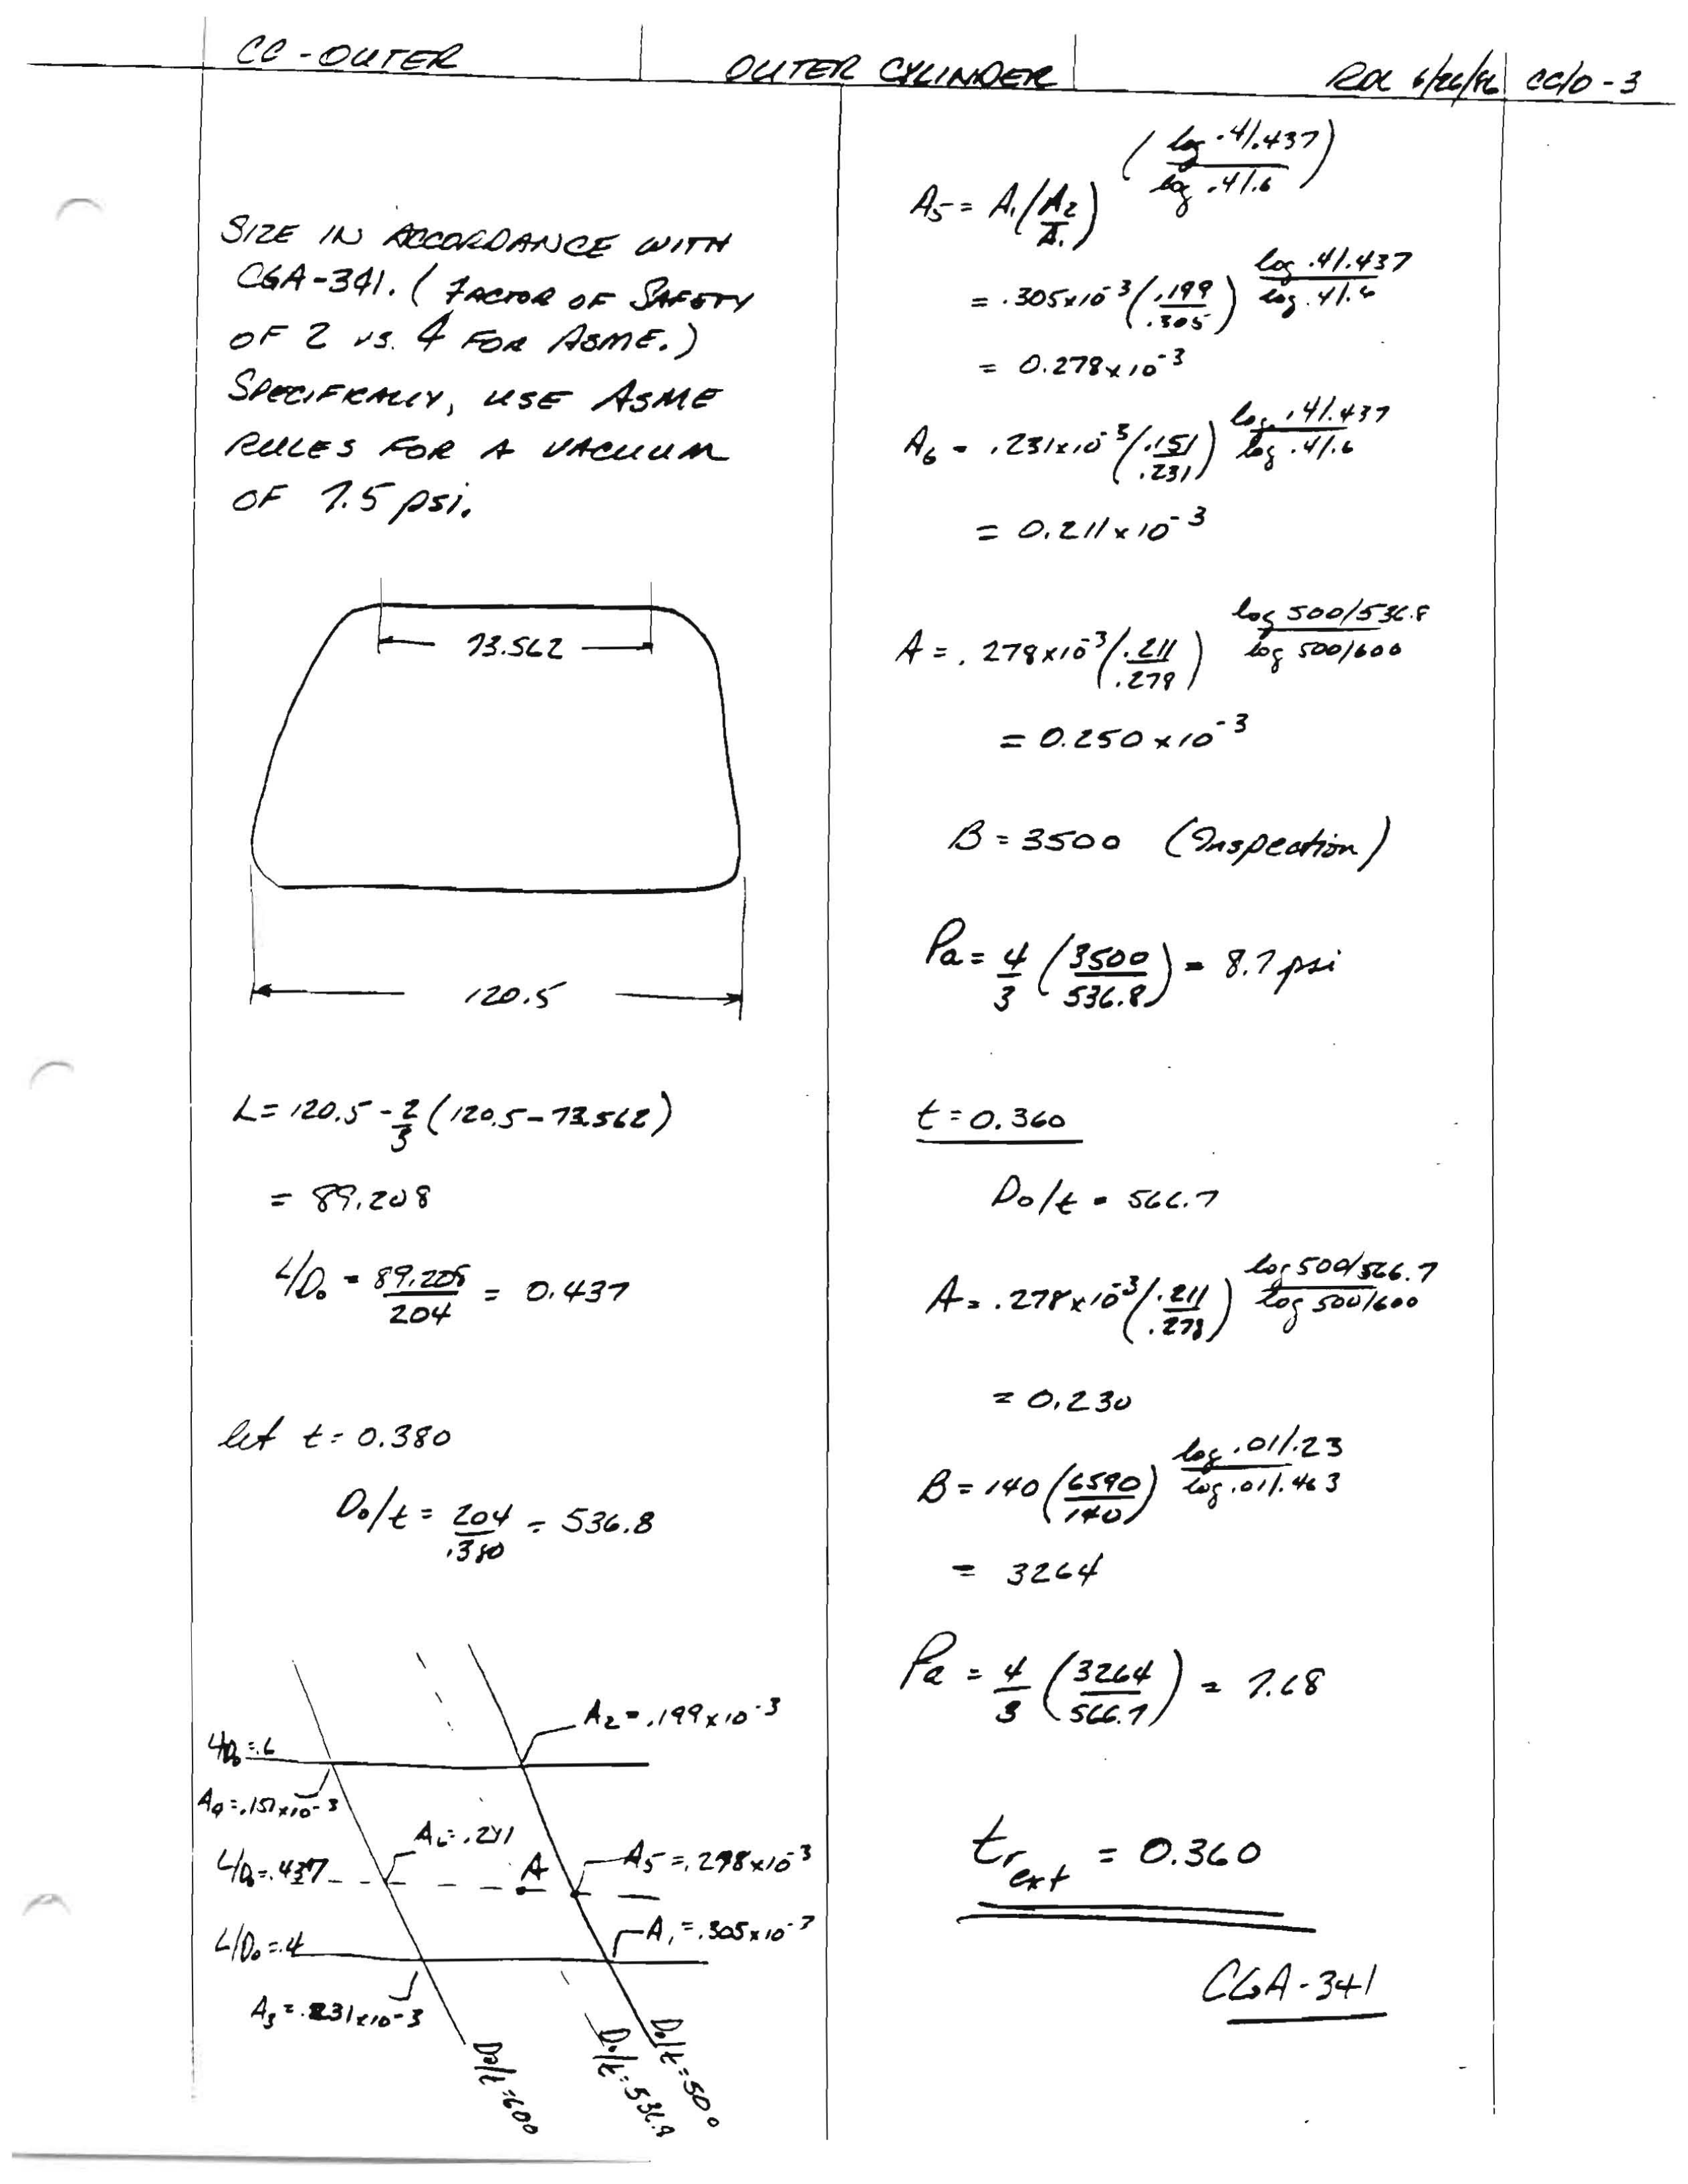 CC-OUTER
OUTER CYLINDER
6/26/86
CC/O-3
SIZE IN ACCORDANCE WITH
CGA-341. (FACTOR OF SAFETY
OF 2 VS. 4 FOR ASME.)
SPECIFICALLY, USE ASME
RULES FOR A VACUUM
OF 7.5 psi.
73.562
120.5
L = 120.5 - 2/3 (120.5 - 73.562)
= 89.208
L/Do = 89.208/204 = 0.437
let t = 0.380
Do/t = 204/.380 = 536.8
A2 = .199 x 10^-3
L/Do = .6
A4 = .151 x 10^-3
A6 = .211
L/Do = .437
A
A5 = .278 x 10^-3
L/Do = .4
A1 = .305 x 10^-3
A3 = .231 x 10^-3
Do/t = 600
Do/t = 536.8
Do/t = 500
A5 = A1 (A2/A1)^(log .4/.437 / log .4/.6)
= .305 x 10^-3 (.199/.305)^(log .4/.437 / log .4/.6)
= 0.278 x 10^-3
A6 = .231 x 10^-3 (.151/.231)^(log .4/.437 / log .4/.6)
= 0.211 x 10^-3
A = .278 x 10^-3 (.211/.278)^(log 500/536.8 / log 500/600)
= 0.250 x 10^-3
B = 3500 (Inspection)
Pa = 4/3 (3500/536.8) = 8.7 psi
t = 0.360
Do/t = 566.7
A = .278 x 10^-3 (.211/.278)^(log 500/566.7 / log 500/600)
= 0.230
B = 140 (6590/140)^(log .01/.23 / log .01/.463)
= 3264
Pa = 4/3 (3264/566.7) = 7.68
tr ext = 0.360
CGA-341